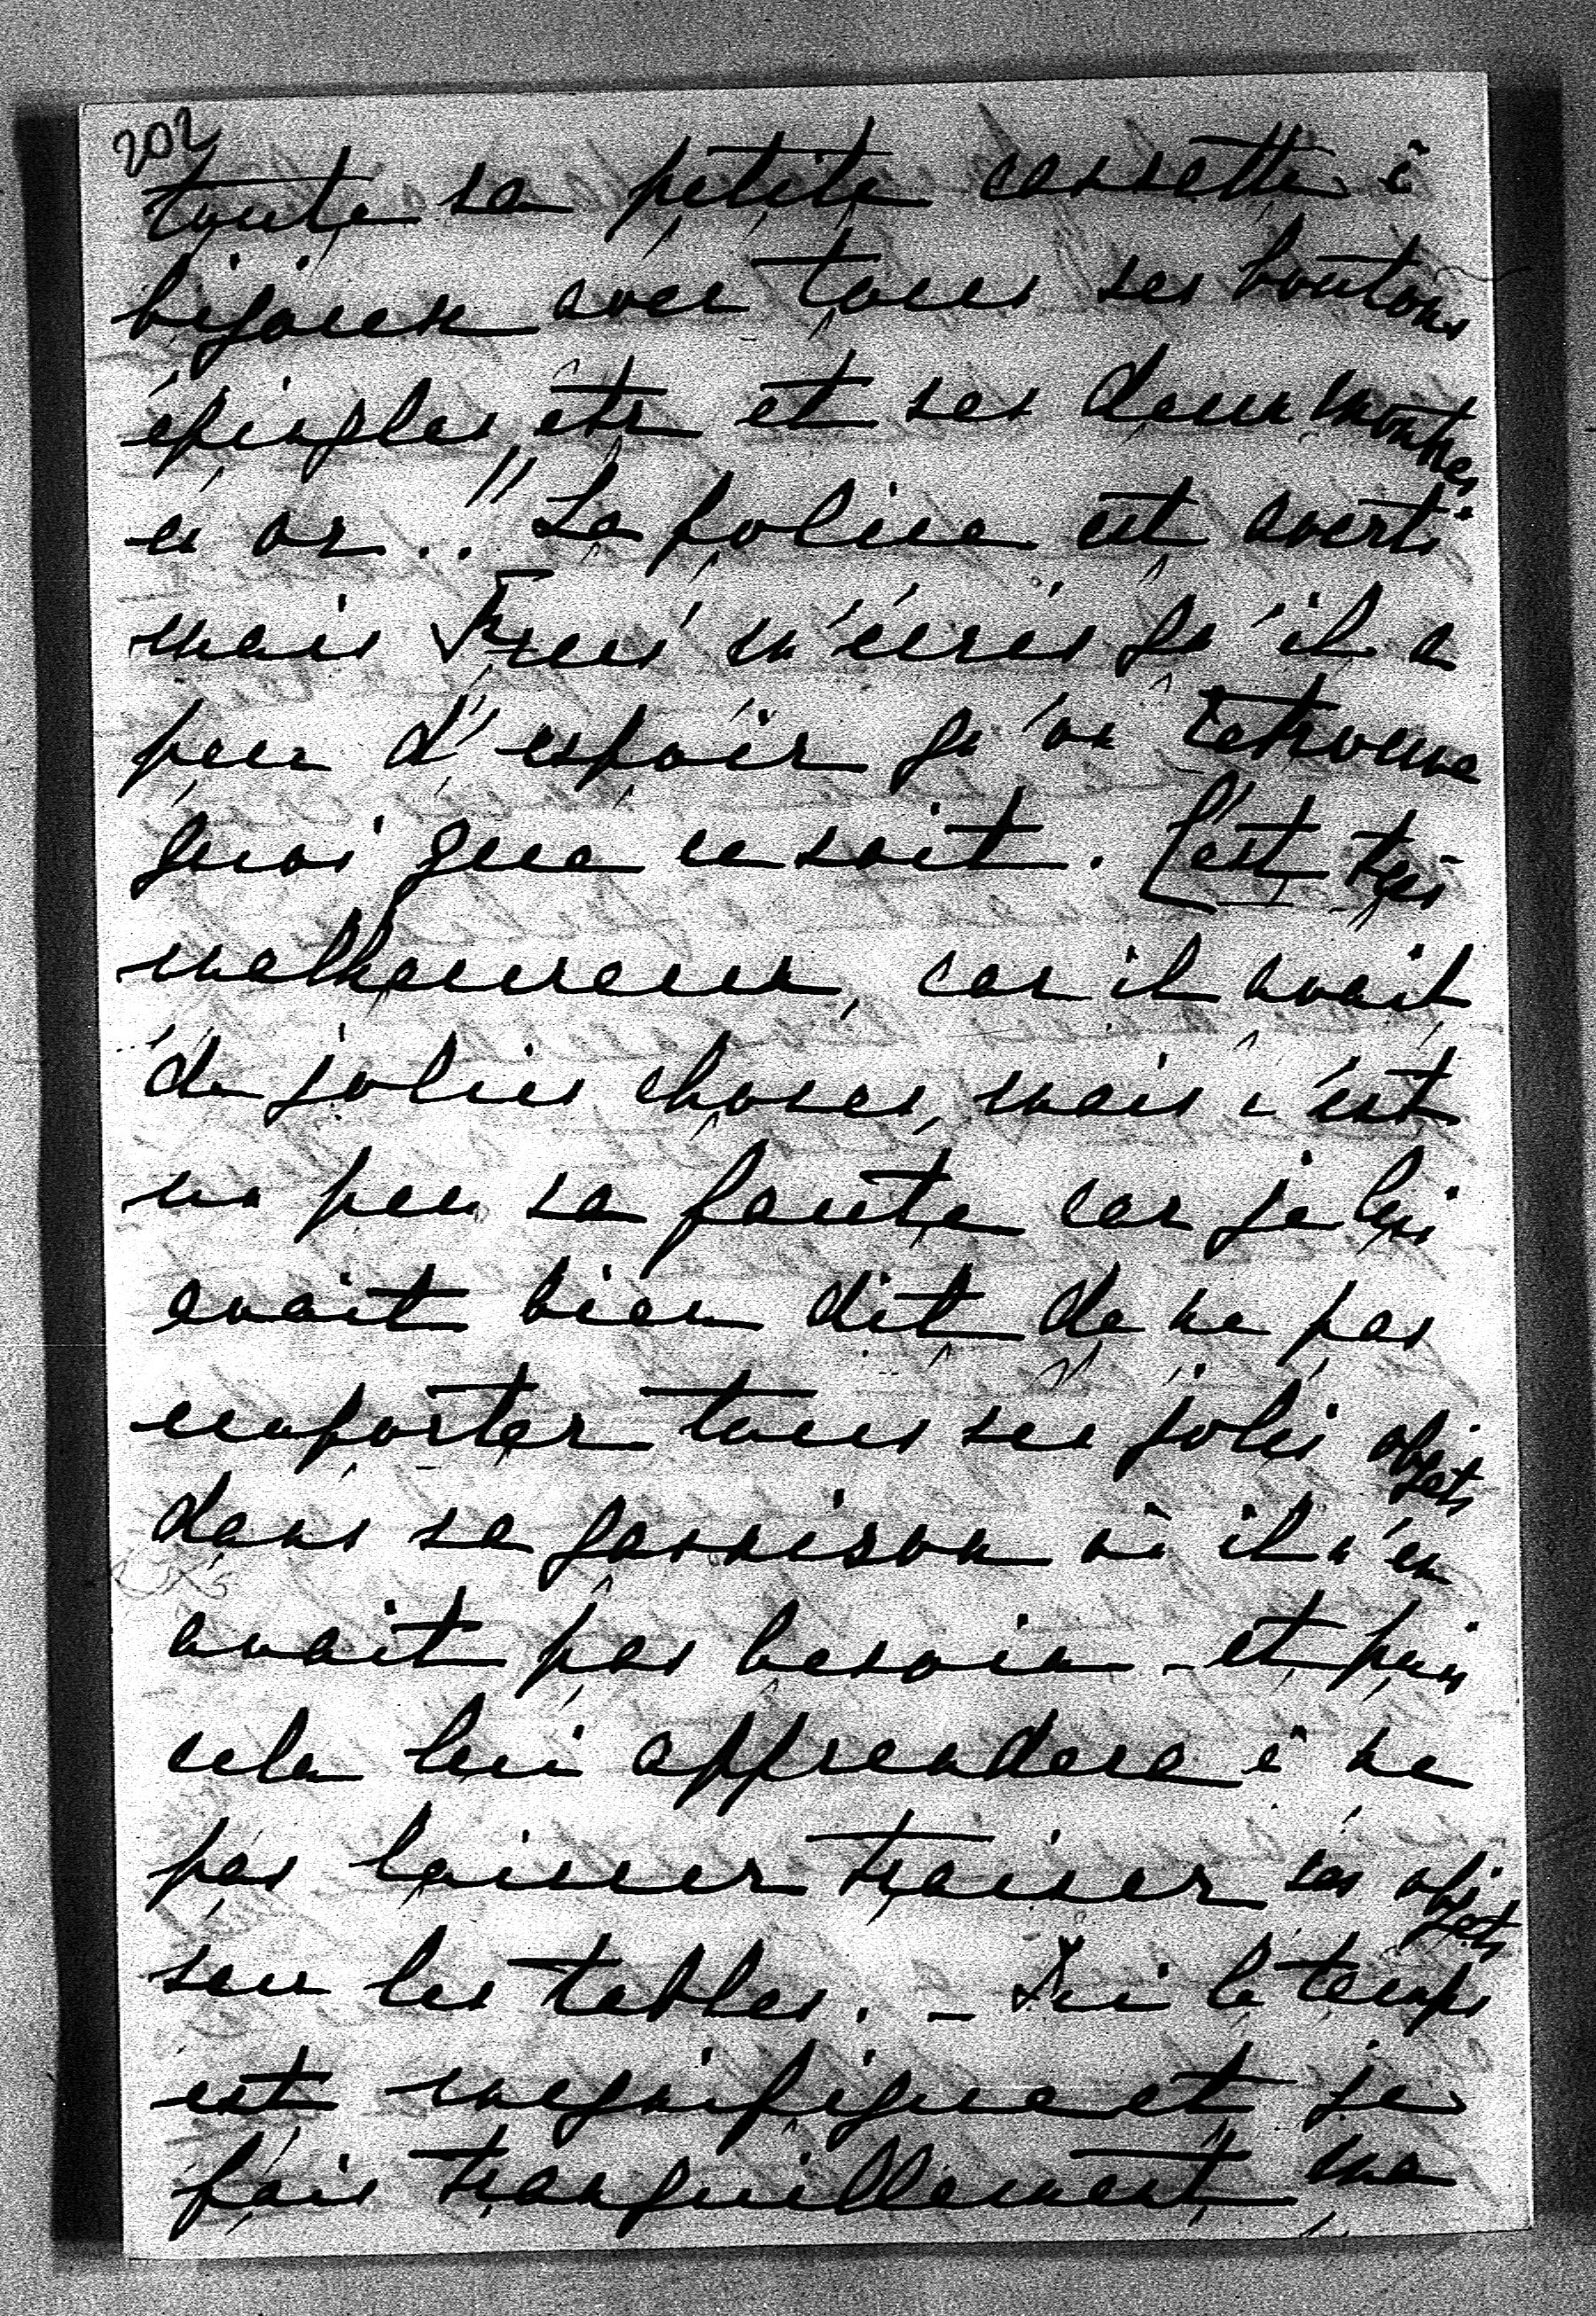 202
toute sa petite cassette à
bijoux avec tous ses boutons
épingles, etc et ses deux montres
en or..!! La police est averti
mais m'écris qu'il a
peu d'espoir qu'on retrouve
quoi que ce soit. C'est très
malheureux, car il avait
de jolies choses, mais c'est
un peu sa faute car je lui
avait bien dit de ne pas
emporter tous ses jolis objets
dans sa garnison où il n'en
avait pas besoin - et puis
cela lui apprendera à ne
pas laisser trainer ses objets
sur les tables. - Ici le temps
est magnifique et je
fais tranquillement ma